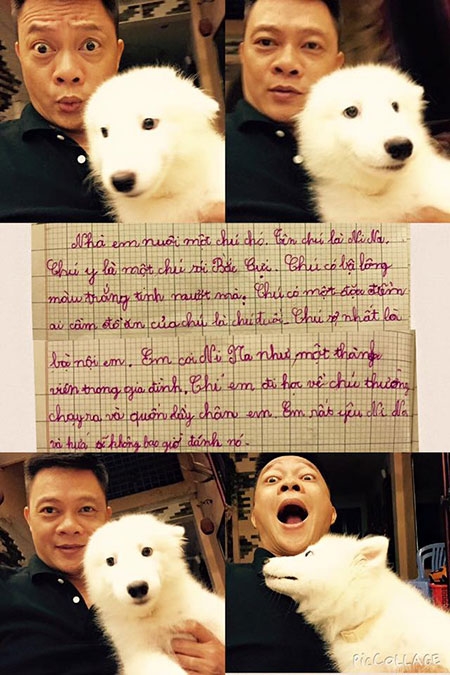 Nhà em nuôi một chú chó. Tên chú là Ni Na.
Chú ý là một chú sói Bắc Cực. Chú có bộ lông
màu trắng tinh mượt mà. Chú có một đặc điểm
ai cầm đồ ăn của chú là chú đuổi. Chú sợ nhất là
bà nội em. Em coi Ni Na như một thành
viên trong gia đình. Khi em đi học về chú thường
chạy ra và quấn lấy chân em. Em rất yêu Ni Na
và hứa sẽ không bao giờ đánh nó.
PicCollage